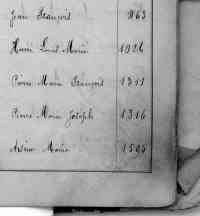 Jean François 863
Henri Louis Marie 1026
Pierre Marie François 1311
Pierre Marie Joseph 1316
Marie 1505